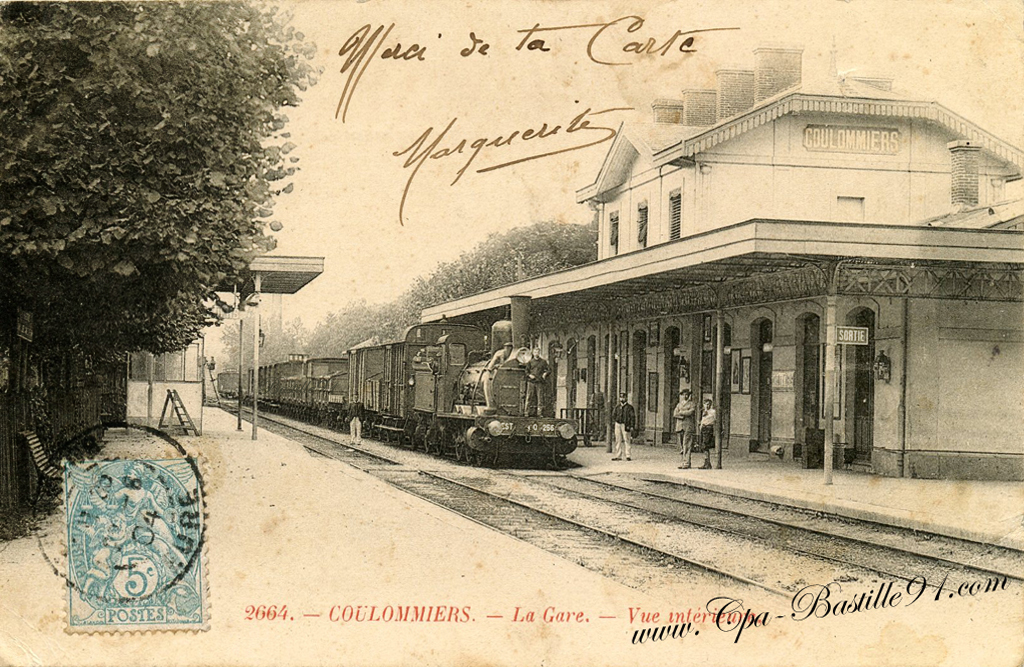 Merci de ta Carte
Marguerite
COULOMMIERS
SORTIE
EST
5c
POSTES
04
2664. — COULOMMIERS. — La Gare. — Vue intérieure
www.Cpa-Bastille91.com